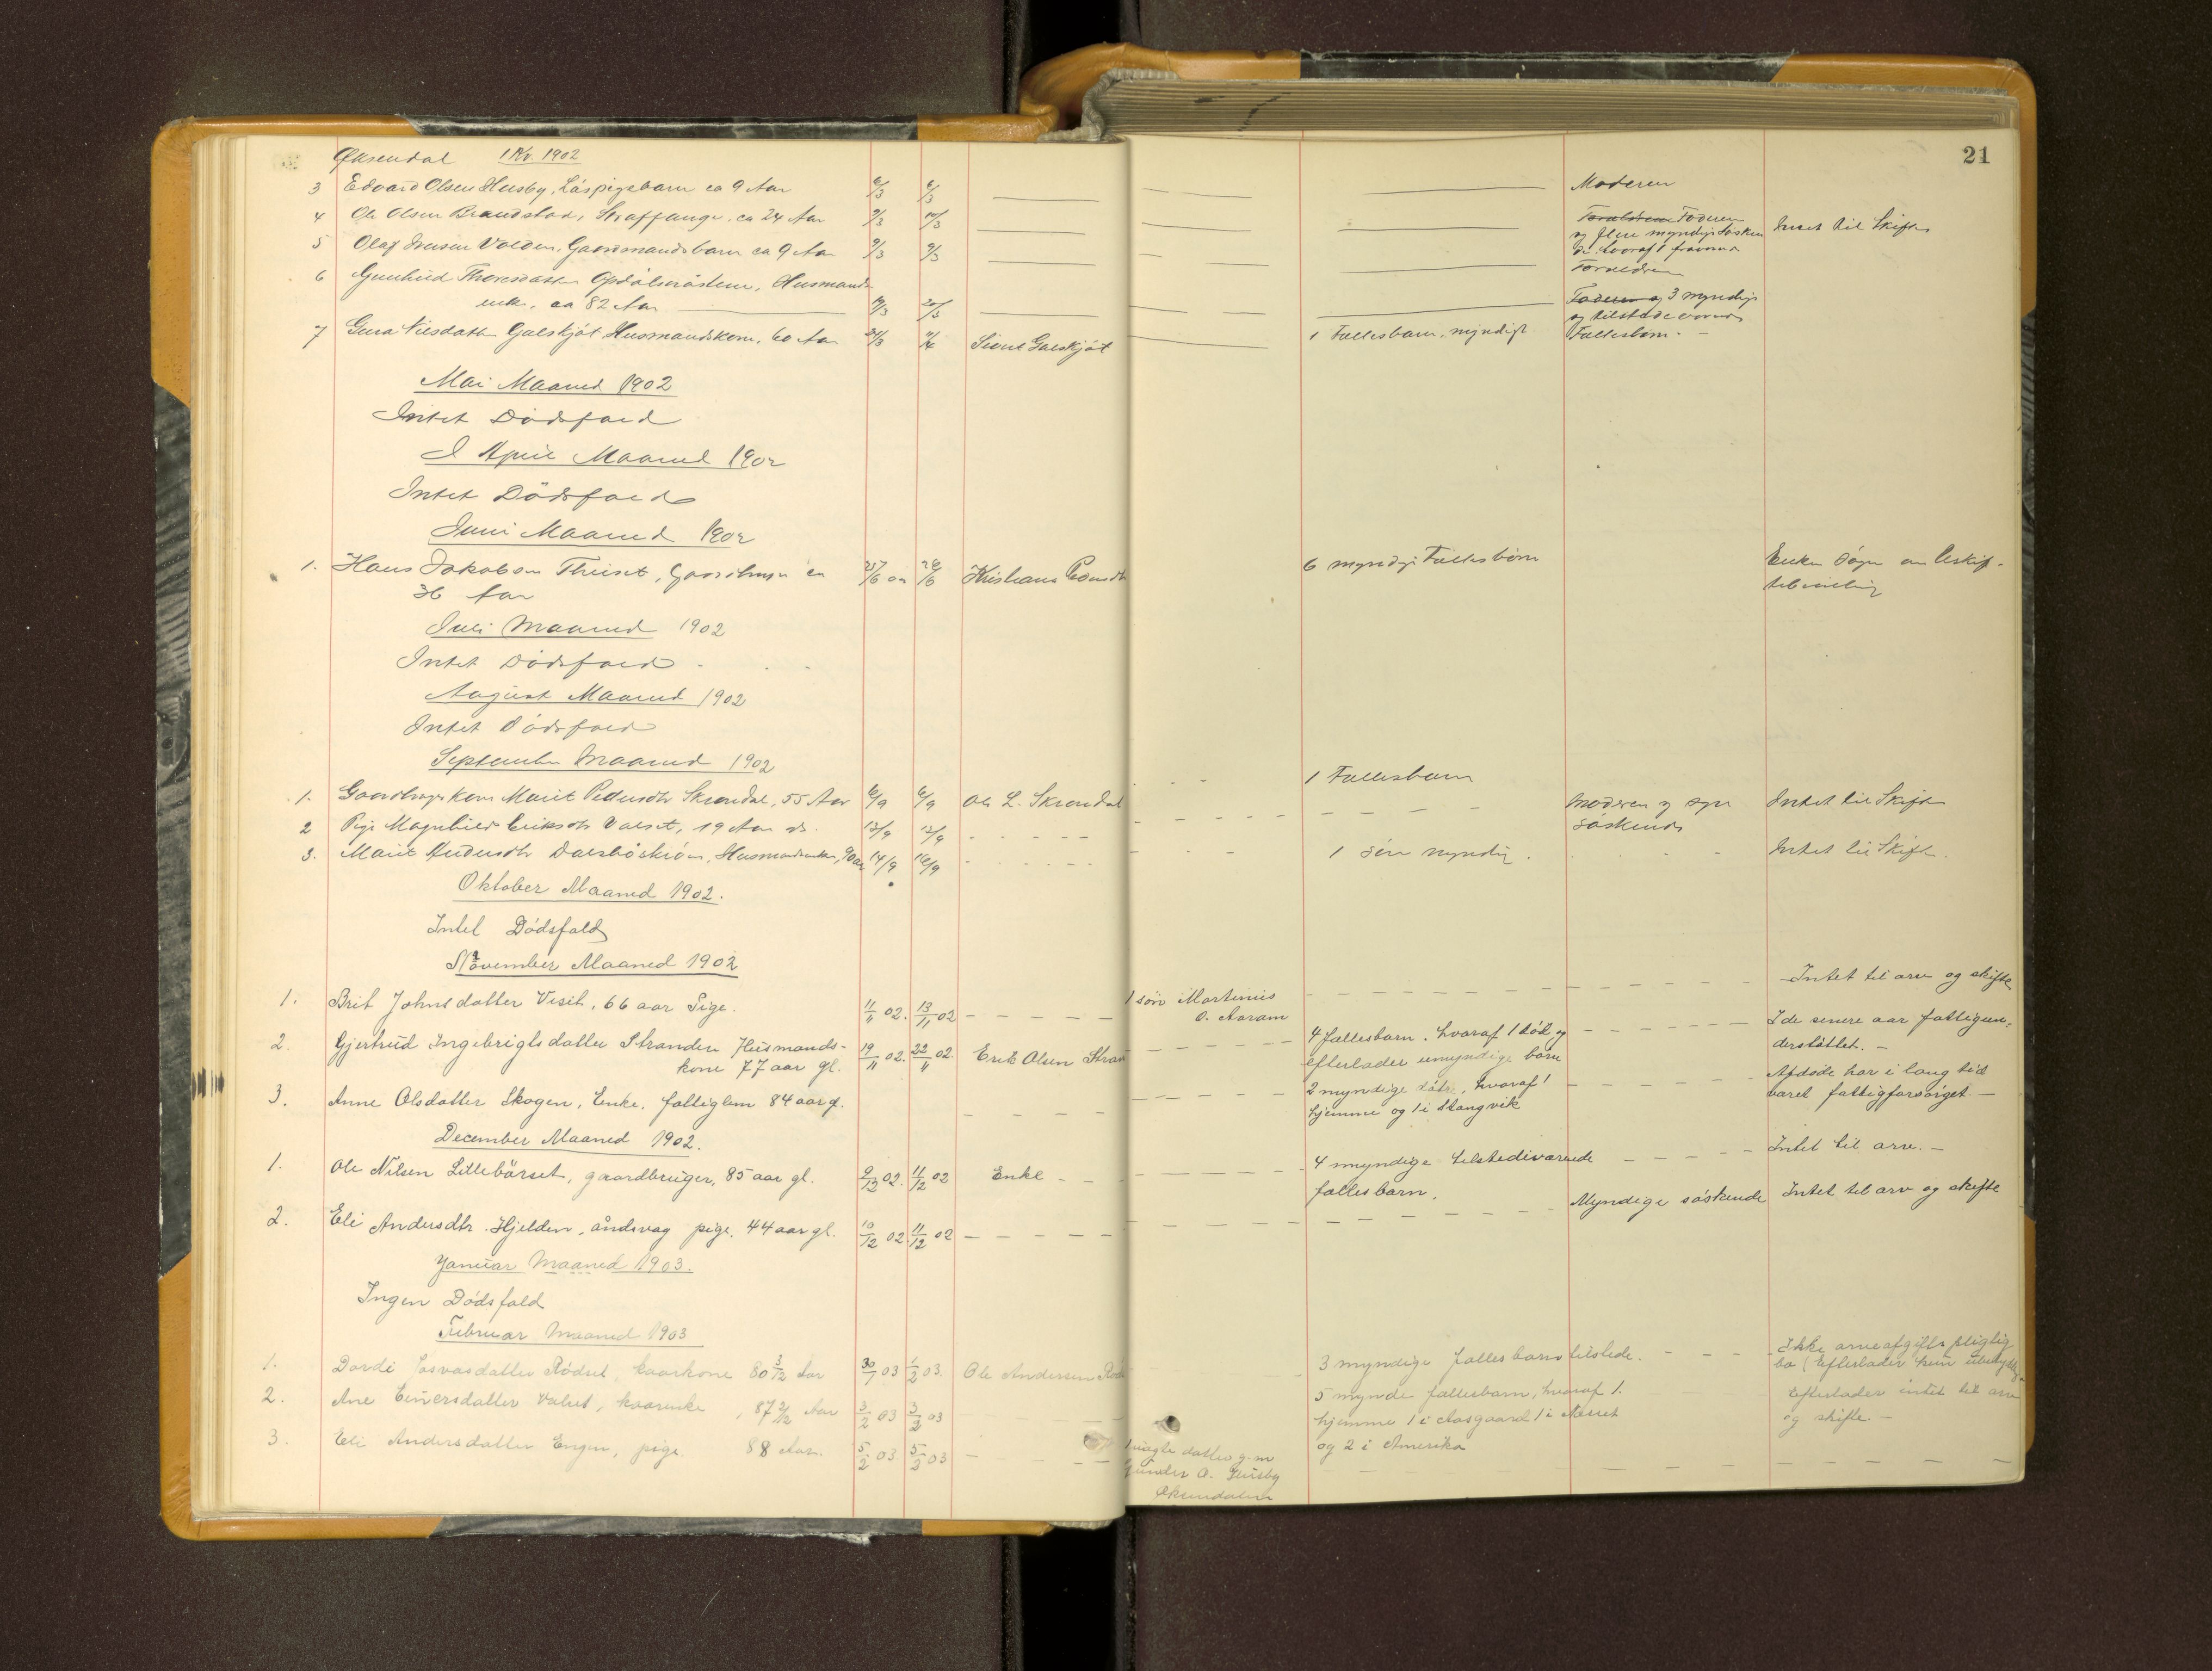 21
Øksendal 1 Kv. 1902
3 Edvard Olsen Husby, Løspigebarn ca 9 Aar 6/3 6/3 Moderen
4 Ole Olsen Brandstad, Straffange, ca 24 Aar 9/3 10/3 Forældrene Faderen Intet til Skifte
og flere myndige Søsken
de hvoraf 1
5 Olaf Iversen Volden, Gaardmandsbarn ca 9 Aar 9/3 9/3 Forældrene
6 Gunhild Thoresdatter Husmands
enke, ca 82 Aar 20/3 Faderen og 3 myndige
og tilstedeværende
7 Gura Nilsdatter Galskjøt Husmandskone, 60 Aar 24/3 Galskjøt 1 Fællesbarn, myndigt Fællesbarn.
Mai Maaned 1902
Intet Dødsfald
I April Maaned 1902
Intet Dødsfald
Juni Maaned 1902
1. Hans Jakobsen Gaardbruger ca 6 myndige Fællesbørn Enken om
36 Aar
Juli Maaned 1902
Intet Dødsfald
August Maaned 1902
Intet Dødsfald
September Maaned 1902
1. Gaardbrugerkone Marit Pedersdtr Skrondal, 55 Aar 6/9 6/9 Ole L. Skrondal 1 Fællesbarn
2 Pige Magnhild Eriksdtr Valset, 19 Aar 12/9 12/9 Moderen og syv Intet til Skifte
søskende
3. Marit Andersdtr Husmandsenke, 90 aar 14/9 16/9 1 søn myndig. Intet til Skifte.
Oktober Maaned 1902.
Intet Dødsfald
November Maaned 1902
1. Brit Johnsdatter Visit, 66 aar Pige. 11/11 02. 13/11 02 1 søn Martinus Intet til arv og skifte
O. Aaram
2. Gjertrud Ingebrigtsdatter Stranden Husmands- 19/11 02. 22/11 02. Erik Olsen Stran 4 fællesbarn, hvoraf 1 død og I de senere aar fattigun-
kone 77 aar gl. efterlader umyndige børn derstøttet. -
3. Anne Olsdatter Skogen, Enke, fattiglem 84 aar g. 2 myndige døtre, hvoraf 1 Afdøde har i lang tid
hjemme og 1 i Stangvik været fattigforsørget -
December Maaned 1902.
1. Ole Nilsen Lillebørset, gaardbruger, 85 aar gl. 9/12 02. 11/12 02 Enke 4 myndige tilstedeværende Intet til arv. -
fællesbarn.
2. Eli Andersdtr. Hjelden, åndsvag pige, 44 aar gl. 10/12 02. 11/12 02 Myndige søskende Intet til arv og skifte
Januar Maaned 1903.
Ingen Dødsfald
Februar Maaned 1903
1. Dordi Josvasdatter Rødset, kaarkone 80 3/12 Aar 30/1 03 1/2 03. Ole Andersen 3 myndige fællesbarn tilstede. Ikke arveafgiftspligtig
bo (Efterlader kun
2. Ane Einersdatter Valset, kaarenke, Aar 3/2 03 3/2 03 5 mynde fællesbarn, hvoraf 1. Efterlader intet til arv
hjemme 1 i Aasgaard 1 i Nesset og skifte. -
og 2 i Amerika
3. Eli Andersdatter Engen, pige 88 Aar. 5/2 03 5/2 03 1 uægte datter g. m
Gunder O. Husby
Øksendalen